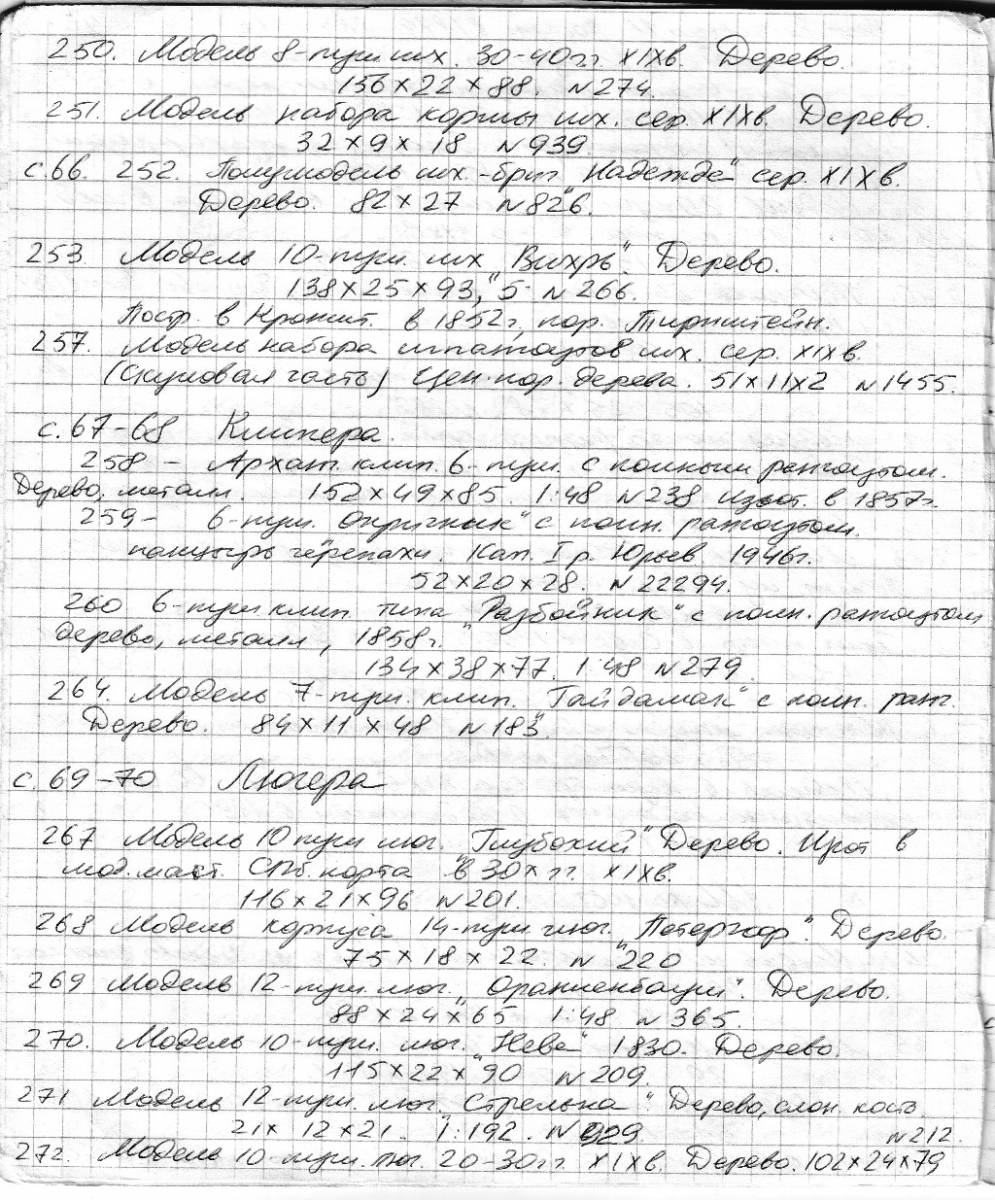 250. Модель 8-пуш. шх. 30-40 гг. XIXв. Дерево.
156×22×88. N274.
251. Модель набора кормы шх. сер. XIXв. Дерево.
32×9×18 N939.
с.66. 252. Полумодель шх.-бриг „Надежда“ сер. XIXв.
Дерево. 82×27 N826.
253. Модель 10-пуш. шх „Вихрь“. Дерево.
138×25×93,5 N266.
Постр. в Кроншт. в 1852г, пор. Тирнштейн.
257. Модель набора шпангоутов шх. сер. XIXв.
(Скуловая часть) Цен. пор. дерева. 51×11×2 N1455.
с.67-68 Клипера.
258 - Арханг. клип. 6-пуш. с полным рангоутом.
Дерево, металл. 152×49×85. 1:48 N238 изгот. в 1857г.
259- 6-пуш. „Опричник“ с полн. рангоутом.
панцырь черепахи. Кап. I р. Юрьев 1946г.
52×20×28. N22294.
260 6-пуш клип. типа „Разбойник“ с полн. рангоутом
дерево, металл, 1858г.
134×38×77. 1:48 N279.
264. Модель 7-пуш. клип. „Гайдамак“ с полн. ранг.
Дерево. 84×11×48 N183.
с.69-70 Люгера
267 Модель 10 пуш люг. „Глубокий“ Дерево. Изгот в
мод. маст. СПб. порта в 30х гг. XIXв.
116×21×96 N201.
268 Модель корпуса 14-пуш. люг. „Петергоф“. Дерево.
75×18×22. N220
269 Модель 12-пуш. люг. „Ораниенбаум“. Дерево.
88×24×65 1:48 N365.
270. Модель 10-пуш. люг. „Нева“ 1830. Дерево.
115×22×90 N209.
271 Модель 12-пуш. люг „Стрельна“. Дерево, слон. кость.
21×12×21. 1:192. N929.
N212.
272. Модель 10-пуш. люг. 20-30гг. XIXв. Дерево. 102×24×79